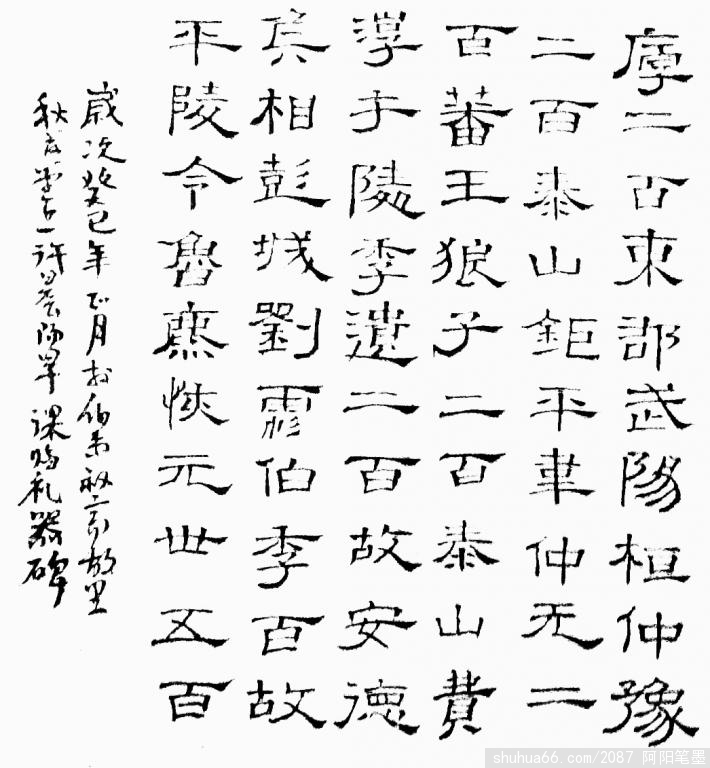 庫二百東郡武陽桓仲豫
二百泰山鉅平韋仲元二
百蕃王狼子二百泰山費
淳于隣季遺二百故安德
侯相彭城劉彪伯李百故
平陵令魯麃恢元世五百
歲次癸巳年正月於伯樂故里
秋月 許 課臨禮器碑
shuhua66.com/2087 阿阳笔墨